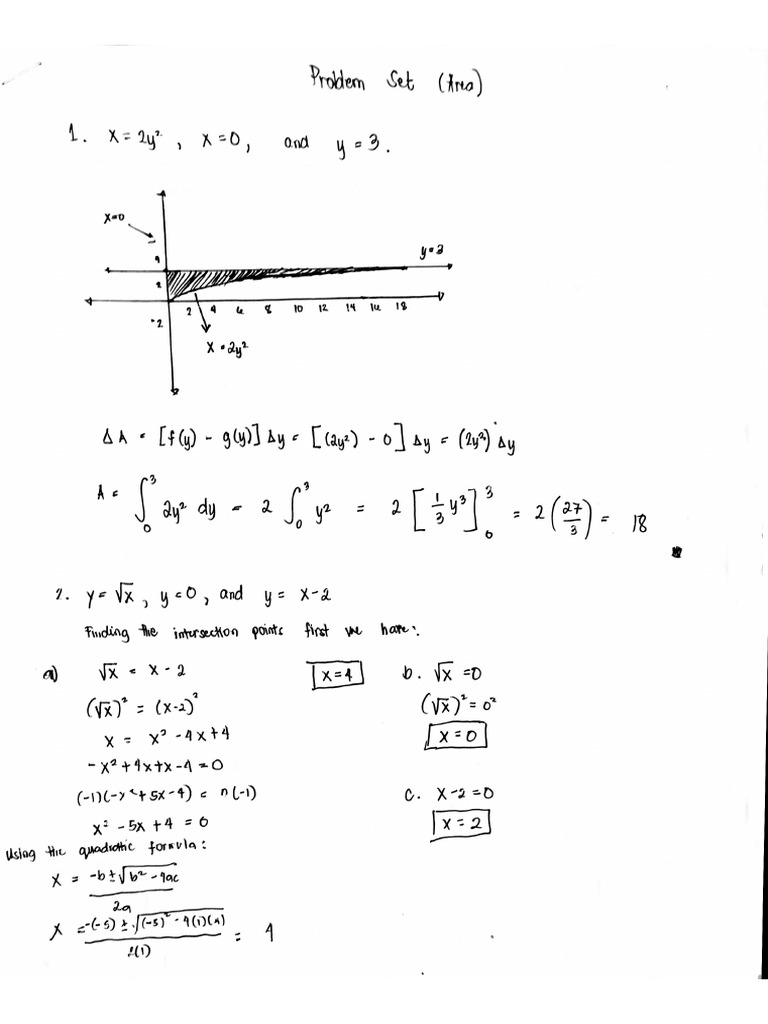 Problem Set (Area)
1. x = 2y², x = 0, and y = 3.
x=0
4
y=3
2
2 4 6 8 10 12 14 16 18
-2
x = 2y²
ΔA = [f(y) - g(y)] Δy = [(2y²) - 0] Δy = (2y²) Δy
A = ∫₀³ 2y² dy = 2 ∫₀³ y² = 2 [1/3 y³]₀³ = 2 (27/3) = 18
2. y = √x, y = 0, and y = x-2
Finding the intersection points first we have:
a) √x = x - 2
(√x)² = (x-2)²
x = x² - 4x + 4
-x² + 4x + x - 4 = 0
(-1)(-x² + 5x - 4) = 0(-1)
x² - 5x + 4 = 0
Using the quadratic formula:
x = (-b ± √(b² - 4ac))/2a
x = (-(-5) ± √((-5)² - 4(1)(4)))/2(1) = 4
x = 4
b. √x = 0
(√x)² = 0²
x = 0
c. x - 2 = 0
x = 2